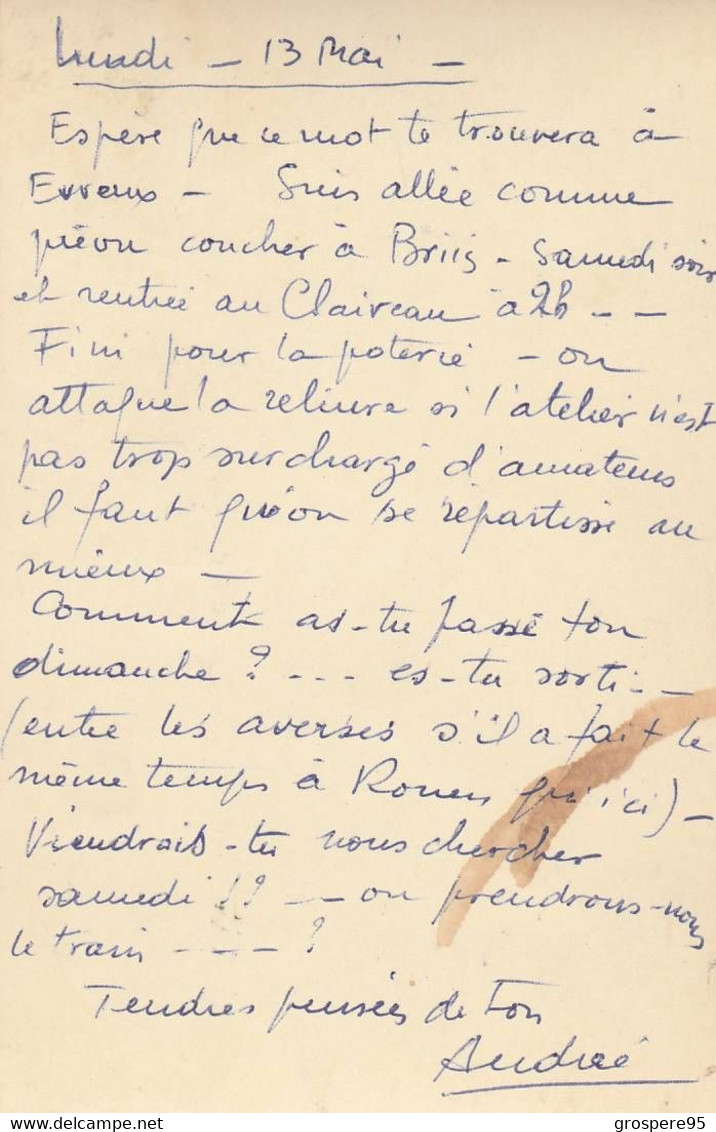 Lundi - 13 Mai -
Espère que ce mot te trouvera à
Evreux - Suis allée comme
prévu coucher à Briis - Samedi soir
et rentrée au Claireau à 2h - -
Fini pour la poterie - on
attaque la reliure si l'atelier n'est
pas trop surchargé d'amateurs
il faut qu'on se répartisse au
mieux -
Comment as-tu passé ton
dimanche ? --- es-tu sorti - -
(entre les averses s'il a fait le
même temps à Rouen qu'ici) -
Viendrais-tu nous chercher
samedi !? -- ou prendrons-nous
le train --- ?
Tendres pensées de ton
Andrée
grospere95